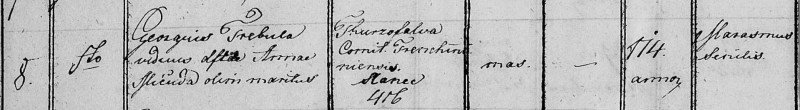 8.
fto
Georgius Trebula
viduus dftae Annae
olim maritus
Thurzofalva
Comit. Trenchini
niensis.
416
mas.
—
74.
annor
Marasmus
Senilis.